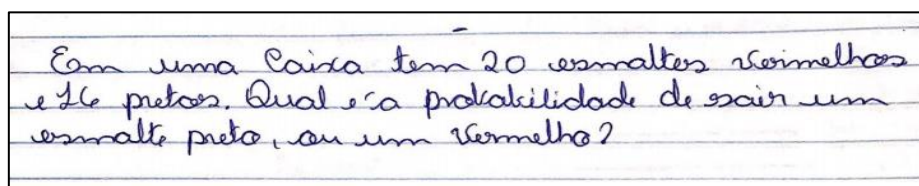 Em uma Caixa tem 20 esmaltes vermelhos
e 16 pretos. Qual é a probabilidade de sair um
esmalte preto, ou um vermelho?